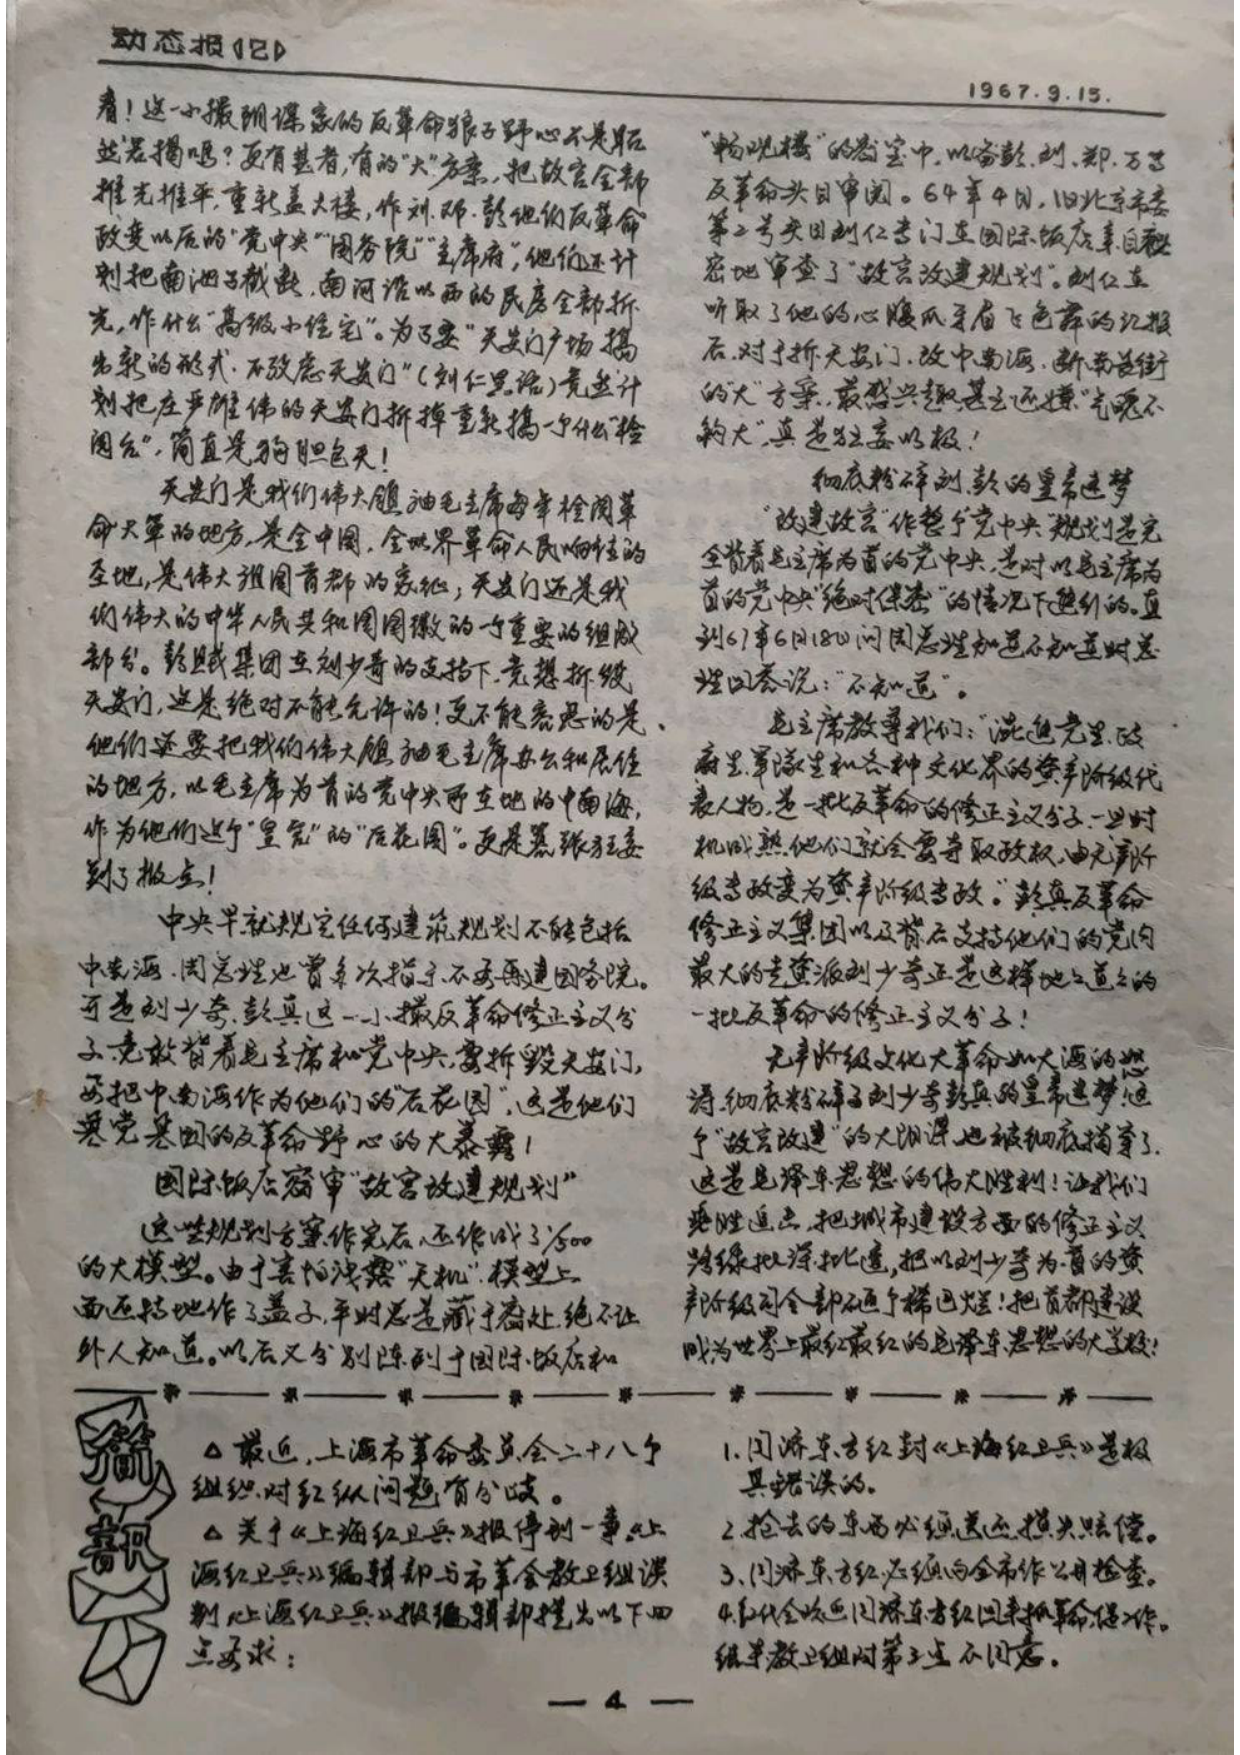 动态报(2)
1967.9.15.
看!这一小撮阴谋家的反革命狼子野心不是昭
然若揭吗?更有甚者,有的"大"方案,把故宫全部
推光推平,重新盖大楼,作刘.邓.彭他们反革命
政变以后的"党中央""国务院""主席府",他们还计
划把南池子截断,南河沿以西的民房全部拆
光,作什么"高级小住宅"。为了要"天安门广场搞
出新的形式.不考虑天安门"(刘仁黑话)竟然计
划把庄严雄伟的天安门拆掉重新搞一个什么"检
阅台",简直是狗胆包天!
天安门是我们伟大领袖毛主席每年检阅革
命大军的地方,是全中国,全世界革命人民响往的
圣地,是伟大祖国首都的象征;天安门还是我
们伟大的中华人民共和国国徽的一个重要的组成
部分。彭贼集团在刘少奇的支持下,竟想拆毁
天安门,这是绝对不能允许的!更不能容忍的是、
他们还要把我们伟大领袖毛主席办公和居住
的地方,以毛主席为首的党中央所在地的中南海,
作为他们这个"皇宫"的"后花园"。更是嚣张狂妄
到了极点!
中央早就规定任何建筑规划不能包括
中南海.周总理也曾多次指示不要再建国务院。
可是刘少奇、彭真这一小撮反革命修正主义分
子,竟敢背着毛主席和党中央,要拆毁天安门,
要把中南海作为他们的"后花园",这是他们
篡党篡国的反革命野心的大暴露!
国际饭店密审"故宫改建规划"
这些规划方案作完后,还作成了1/500
的大模型。由于害怕泄露"天机".模型上
面还特地作了盖子,平时总是藏于密处,绝不让
外人知道。以后又分别陈列于国际饭店和
"畅观楼"的密室中,以备彭.刘.郑.万等
反革命头目审阅。64年4月,旧北京市委
第二号头目刘仁专门在国际饭店亲自秘
密地审查了"故宫改建规划"。刘仁在
听取了他的心腹爪牙眉飞色舞的汇报
后.对于拆天安门.改中南海.断南长街
的"大"方案,最感兴趣甚至还嫌"气魄不
够大",真是狂妄以极!
彻底粉碎刘、彭的皇帝迷梦
"改建故宫"作整个党中央"规划是完
全背着毛主席为首的党中央,是对以毛主席为
首的党中央"绝对保密"的情况下进行的。直
到67年6月18日问周总理知道不知道时总
理回答说:"不知道"。
毛主席教导我们:"混进党里、政
府里、军队里和各种文化界的资产阶级代
表人物,是一批反革命的修正主义分子,一旦时
机成熟他们就会要夺取政权,由无产阶
级专政变为资产阶级专政。"彭真反革命
修正主义集团以及背后支持他们的党内
最大的走资派刘少奇正是这样地地道道的
一批反革命的修正主义分子!
无产阶级文化大革命如大海的怒
涛,彻底粉碎了刘少奇彭真的皇帝迷梦!这
个"故宫改建"的大阴谋,也被彻底揭穿了.
这是毛泽东思想的伟大胜利!让我们
乘胜追击,把城市建设方面的修正主义
路线批深批透,把以刘少奇为首的资
产阶级司令部砸个稀巴烂!把首都建设
成为世界上最红最红的毛泽东思想的大学校!
简
讯
△ 最近,上海市革命委员会二十八个
组织对红纵问题有分歧。
△ 关于《上海红卫兵》报停刊一事.《上
海红卫兵》编辑部与市革会教卫组谈
判《上海红卫兵》报编辑部提出以下四
点要求:
1.同济东方红封《上海红卫兵》是极
其错误的。
2.抢去的东西必须送还,损失赔偿。
3、同济东方红必须向全市作公开检查。
4.红代会
同济东方红回来抓革命,促工作。
结果教卫组对第3点不同意。
— 4 —